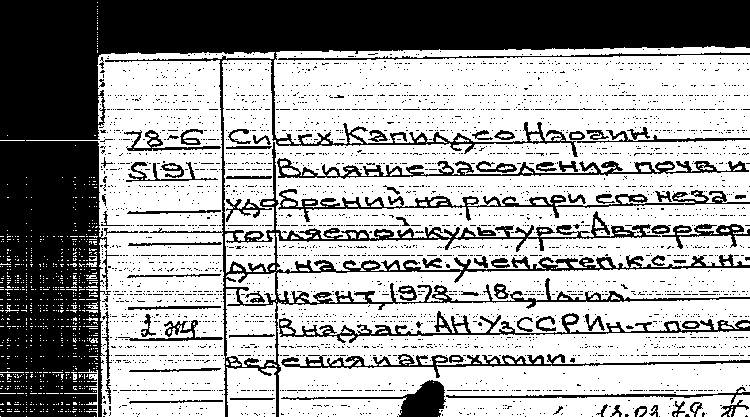 78-6 Сингх Капилдео Нараин.
5191 Влияние засоления почв и
удобрений на рис при его неза-
топляемой культуре: Автореф.
дис. на соиск. учен. степ. к.с.-х.н.-
Ташкент, 1978 - 18с, 1л.ил.
2 экз В надзаг.: АН УзССР Ин-т почво
ведения и агрохимии.
13.03.79.